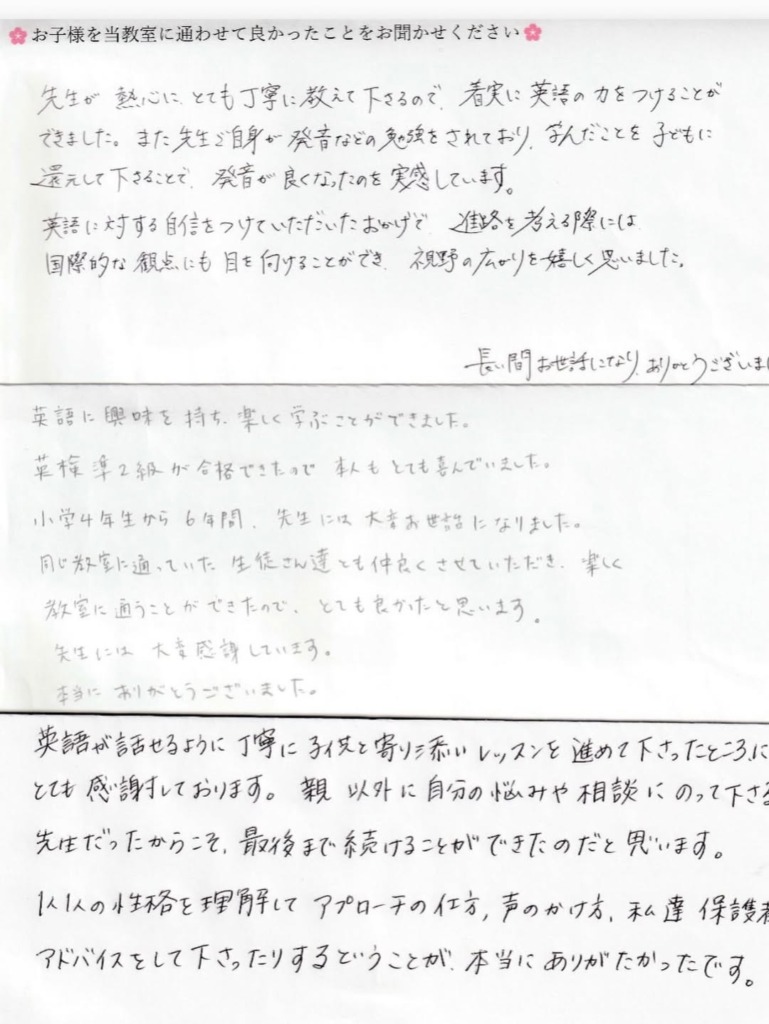 お子様を当教室に通わせて良かったことをお聞かせください
先生が 熱心に、とても丁寧に教えて下さるので、着実に英語の力をつけることが
できました。また先生ご自身が 発音などの勉強をされており、学んだことを子どもに
還元して下さることで、発音が良くなったのを実感しています。
英語に対する自信をつけていただいたおかげで、進路を考える際には
国際的な観点にも目を向けることができ、視野の広がりを嬉しく思いました。
長い間お世話になり、ありがとうございまし
英語に興味を持ち、楽しく学ぶことができました。
英検準2級が合格できたので 本人もとても喜んでいました。
小学4年生から6年間、先生には大変お世話になりました。
同じ教室に通っていた生徒さん達とも仲良くさせていただき、楽しく
教室に通うことができたので、とても良かったと思います。
先生には 大変感謝しています。
本当に ありがとうございました。
英語が話せるように丁寧に子供と寄り添いレッスンを進めて下さったところ、に
とても感謝しております。親以外に自分の悩みや相談にのって下さる
先生だったからこそ、最後まで続けることができたのだと思います。
1人1人の性格を理解して アプローチの仕方、声のかけ方、私達 保護者
アドバイスをして下さったりするということが、本当にありがたかったです。